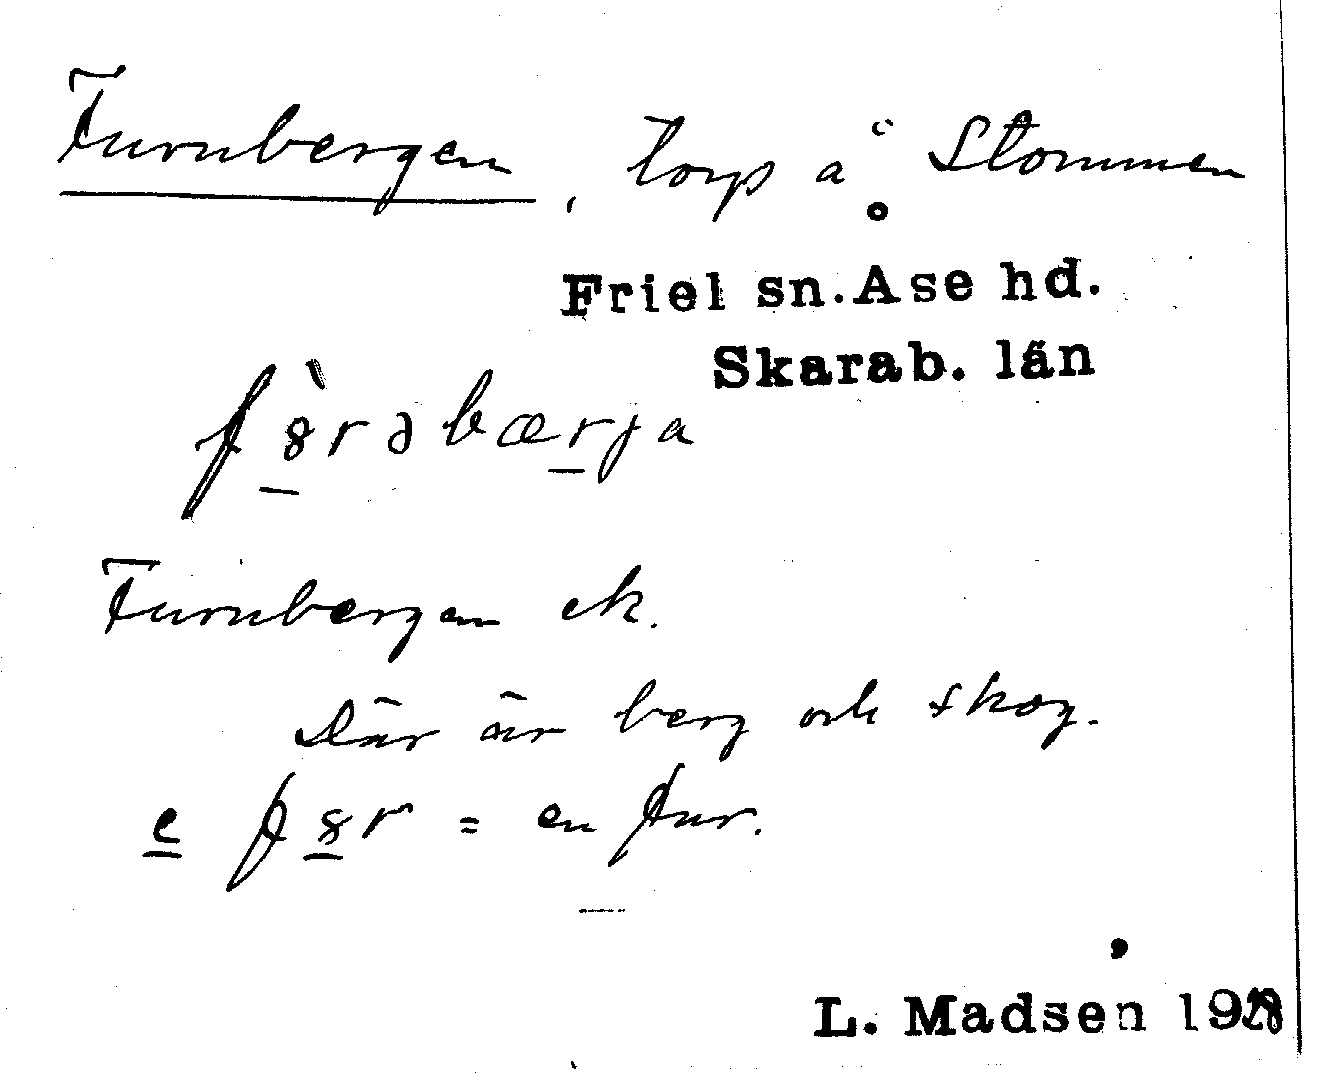 Furnbergen, torp å Stommen
Friel sn. Åse hd.
Skarab. län
f8̲̀rəbær̲ja
Furnbergen ek.
Där är berg och skog.
e̲ f8̲r = en fur.
L. Madsen 1928